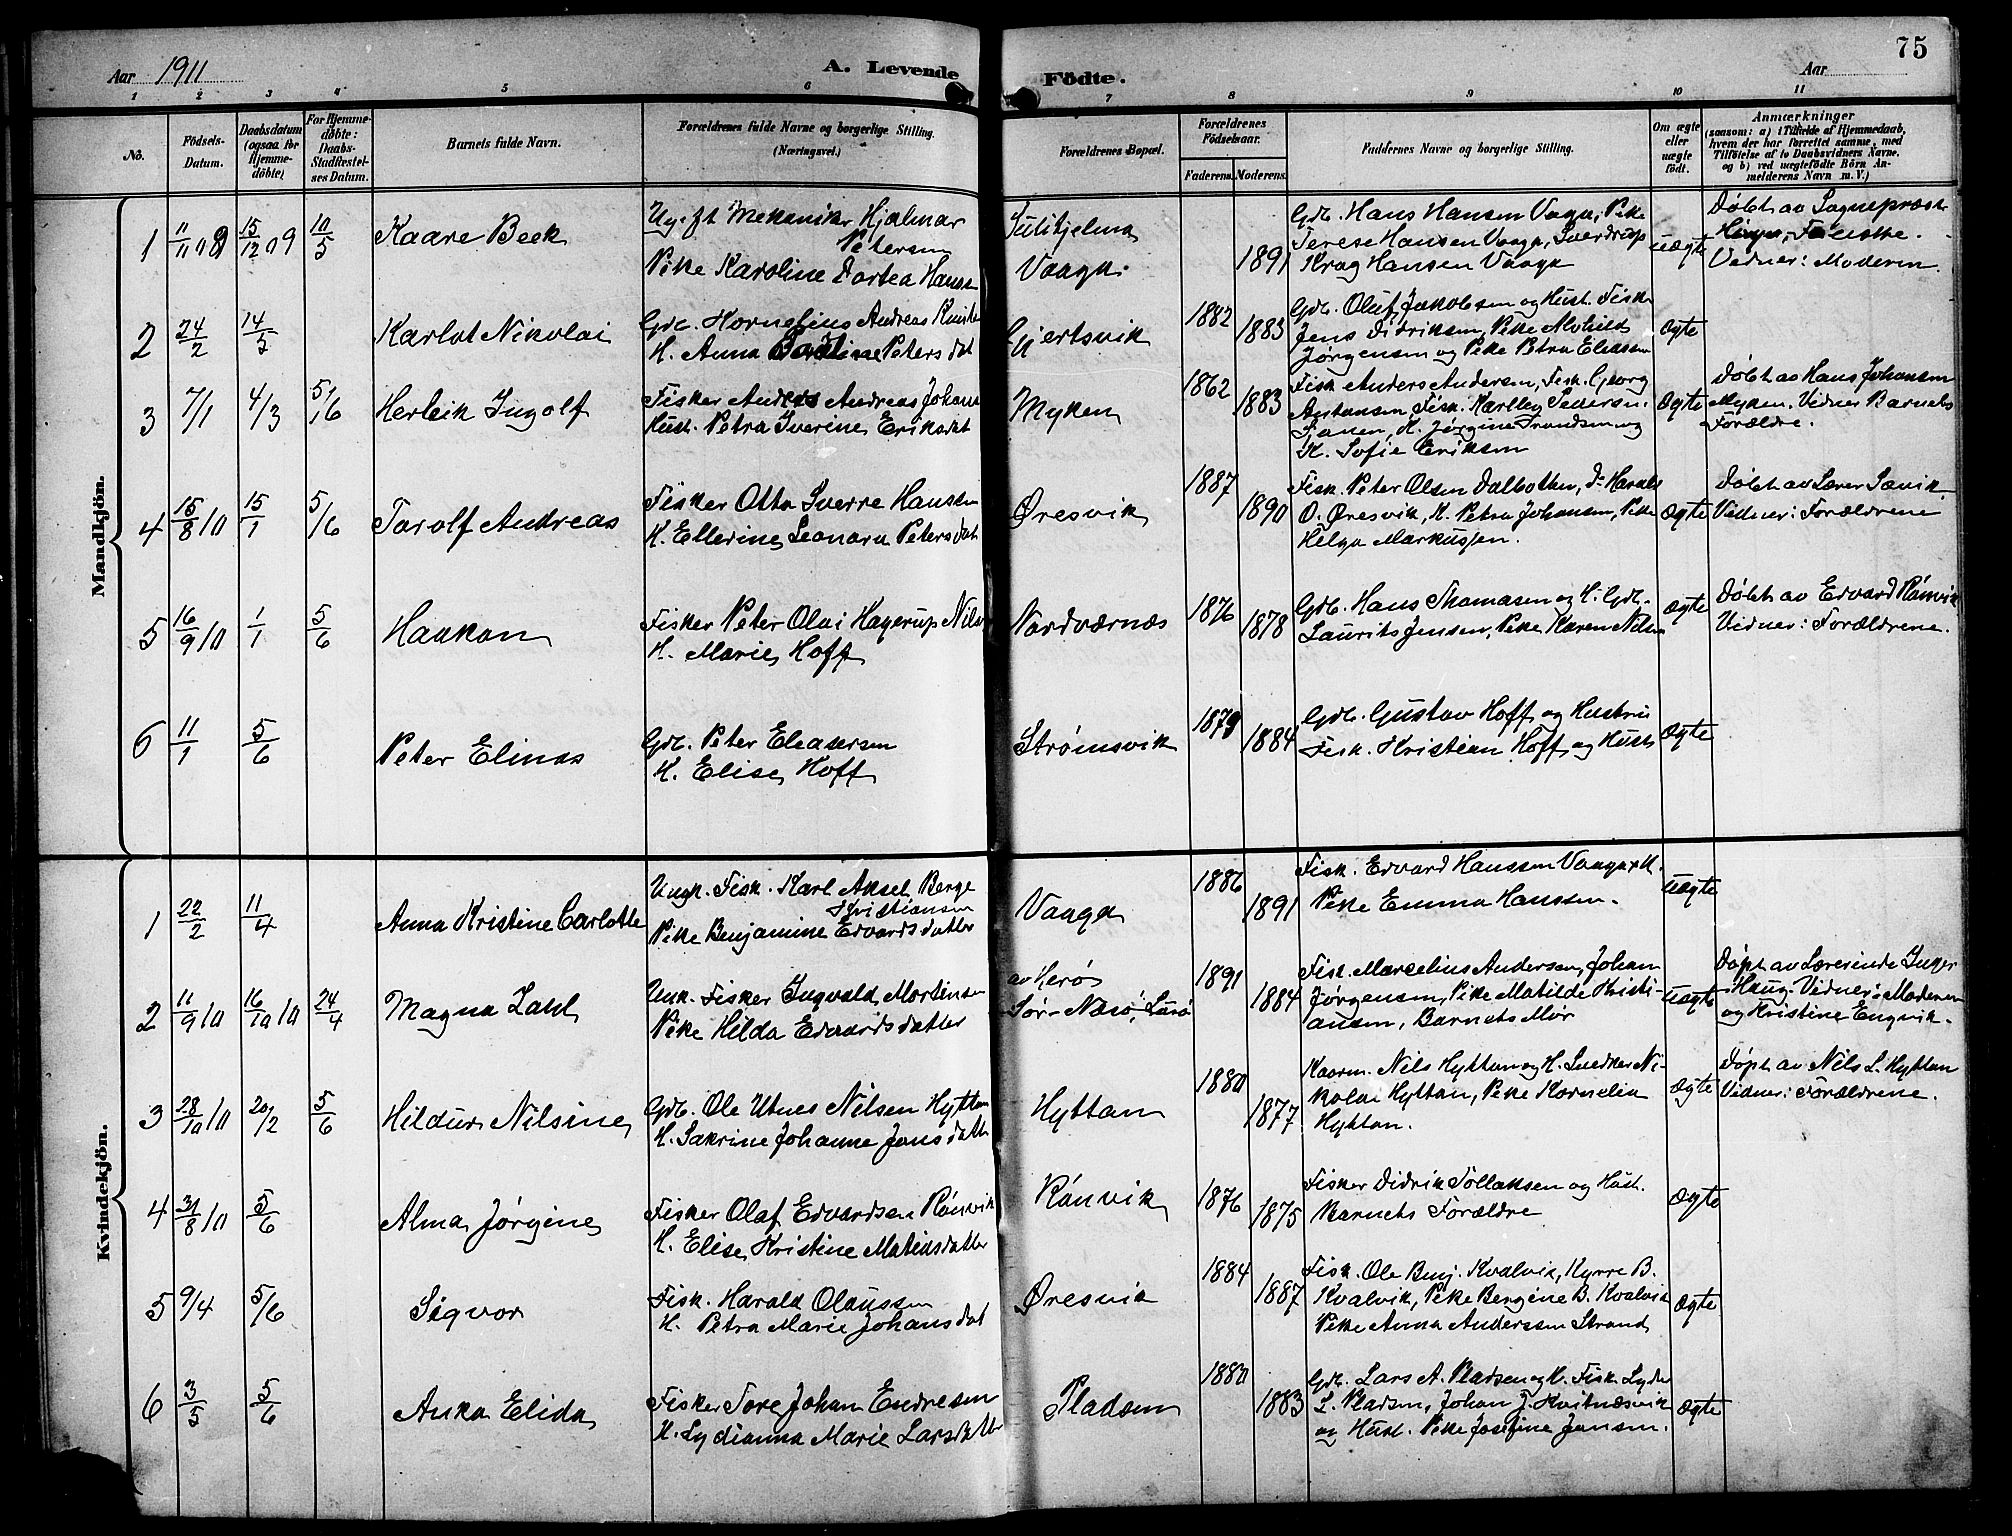 75
Aar 1911
A. Levende
Födte.
Aar
1 2 3 4 5 6 7 8 9 10 11
No.
Födsels-
Datum.
Daabsdatum
(ogsaa for
Hjemme-
döbte)
For Hjemme-
döbte:
Daabs-
Stadfæstel-
ses Datum.
Barnets fulde Navn.
Forældrenes fulde Navne og borgerlige Stilling.
(Næringsvei.)
Forældrenes Bopæl.
Forældrenes
Födselsaar.
Faderens. Moderens.
Faddernes Navne og borgerlige Stilling.
Om ægte
eller
uægte
födt.
Anmærkninger
(saasom: a) i Tilfælde af Hjemmedaab,
hvem der har forrettet samme, med
Tilföielse af to Daabsvidners Navne,
og b) ved uægtefödte Börn An-
melderens Navn m. V.)
Mandkjön.
1 11/11 09 15/12 09 10/5
Kaare Beck
Ug. ft Mekaniker Hjalmar
Petersen
Pike Karoline Dortea Hansen
Sulitjelma
Vaaga.
1891
Gdb. Hans Hansen Vaaga, Pike
Terese Hansen Vaaga, Sverdrup
Krag Hansen Vaaga
uægte
Døbt av Sogneprest
Fauske.
Vidner: Moderen.
2 24/2 14/5
Karlot Nikolai
Gdb. Kornelius Andreas
H. Anna Petersdat
Gjertsvik
1882 1883
Gdb. Oluf Jakobsen og Hust. Fisker
Jens Didriksen, Pike Alvhild
Jørgensen og Pike Petra Eliassen
ægte
3 7/1 4/3 5/6
Herleik Ingolf
Fisker Anders Andreas Johans
Hust. Petra Iverine Eriksdat
Myken
1862 1883
Fisk. Anders Andersen, Fisk. Georg
Antonsen, Fisk. Hartley Pedersen
H. Jørgine Trondsen og
H. Sofie Eriksen
ægte
Døbt av Hans Johansen
Myken. Vidner Barnets
Forældre.
4 15/8 10 15/1 5/6
Torolf Andreas
Fisker Otto Sverre Hanssen
H. Ellerine Leonara Petersdat
Øresvik
1887 1890
Fisk. Peter Olsen Dalbotten, do Harald
O. Øresvik, H. Petra Johansen, Pike
Helga Markussen.
ægte
Døbt av Lærer Sævik.
Vidner: Forældrene
5 16/9 10 1/1 5/6
Haakon
Fisker Peter Olai Hagerup Nils
H. Marie Hoff
Nordværnæs
1876 1878
Gdb. Hans Thomasen og H. Gdb.
Laurits Jensen, Pike Karen Nilsen
ægte
Døbt av Edvard Rønvik
Vidner: Forældrene.
6 11/1 5/6
Peter Elinas
Gdb. Peter Eleasersen
H. Elise Hoff
Strømsvik
1879 1884
Gdb. Gustav Hoff og Hustru
Fisk. Kristian Hoff og Hust.
ægte
Kvindekjön.
1 22/2 11/4
Anna Kristine Carlotte
Ungk. Fisk. Karl Aksel Berge
Kristiansen
Pike Benjamine Edvardsdatter
Vaaga
1886 1891
Fisk. Edvard Hanssen Vaaga, H.
Pike Emma Hanssen.
uægte
2 11/9 10 16/10 10 24/4
Magna Zahl
Unk. Fisker Ingvald Mortinsen
Pike Hilda Edvardsdatter
av Herø
Sør-Nesø, Lurø
1891 1884
Fisk. Marcelius Andersen, Johan
Jørgensen, Pike Matilde Kristi-
ansen, Barnets Mor
uægte
Døpt av Lærerinde Inger
Haug. Vidner: Moderen
og Kristine Engvik.
3 28/10 10 20/2 5/6
Hildur Nilsine
Gdb. Ole Utnes Nilsen Hyttan
H. Sakrine Johanne Jensdatter
Hyttan
1880 1877
Kaarm. Nils Hyttan og H. Snedker Ni-
kolai Hyttan, Pike Kornelia
Hyttan.
ægte
Døpt av Nils L. Hyttan
Vidner: Forældrene.
4 31/8 10 5/6
Alma Jørgine
Fisker Olaf Edvardsen Rønvik
H. Elise Kristine Matiasdatter
Rønvik
1876 1875
Fisker Didrik Tollaksen og Hust.
Barnets Forældre
ægte
5 9/4 5/6
Sigvor
Fisk. Harald Olaussen
H. Petra Marie Johansdat
Øresvik
1884 1887
Fisk. Ole Benj. Kvalvik, Kyrre B.
Kvalvik, Pike Bergine B. Kvalvik
Pike Anna Anderssen Strand
ægte
6 3/5 5/6
Anna Elida
Fisker Tore Johan Endresen
H. Lydianna Marie Larsdatter
Pladsen
1880 1883
Gdb. Lars A. Pladsen og H. Fisk. Lyder
L. Pladsen, Johan J. Kvitnæsvik
og Hust. Pike Josefine Jensen.
ægte